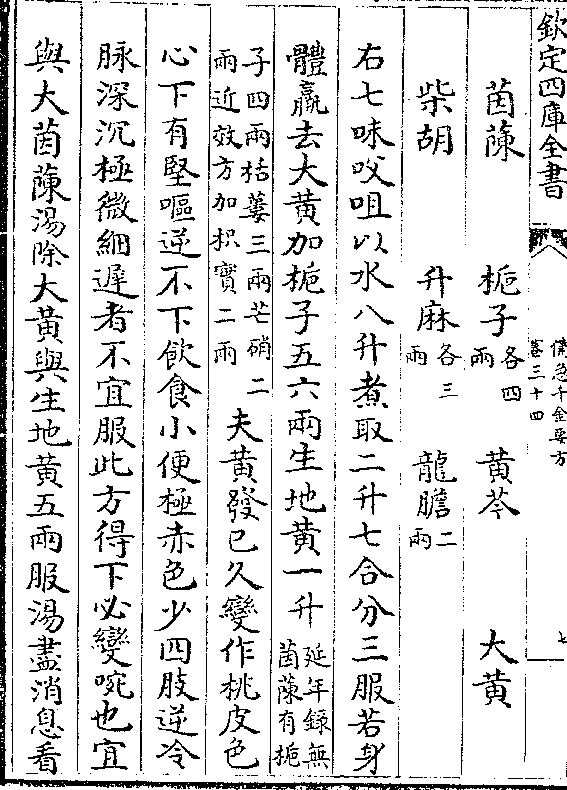 欽定四庫全書
備急千金要方
卷三十四
七
茵蔯　梔子各四兩　黄芩　大黄
柴胡　升麻各三兩　龍膽二兩
右七味㕮咀以水八升煮取二升七合分三服若身
體羸去大黄加梔子五六兩生地黄一升延年録無茵蔯有梔
子四兩栝蔞三兩芒硝二兩近效方加枳實二兩夫黄發已久變作桃皮色
心下有堅嘔逆不下飲食小便極赤色少四肢逆冷
脉深沉極微細遲者不宜服此方得下必變啘也宜
與大茵蔯湯除大黄與生地黄五兩服湯盡消息看